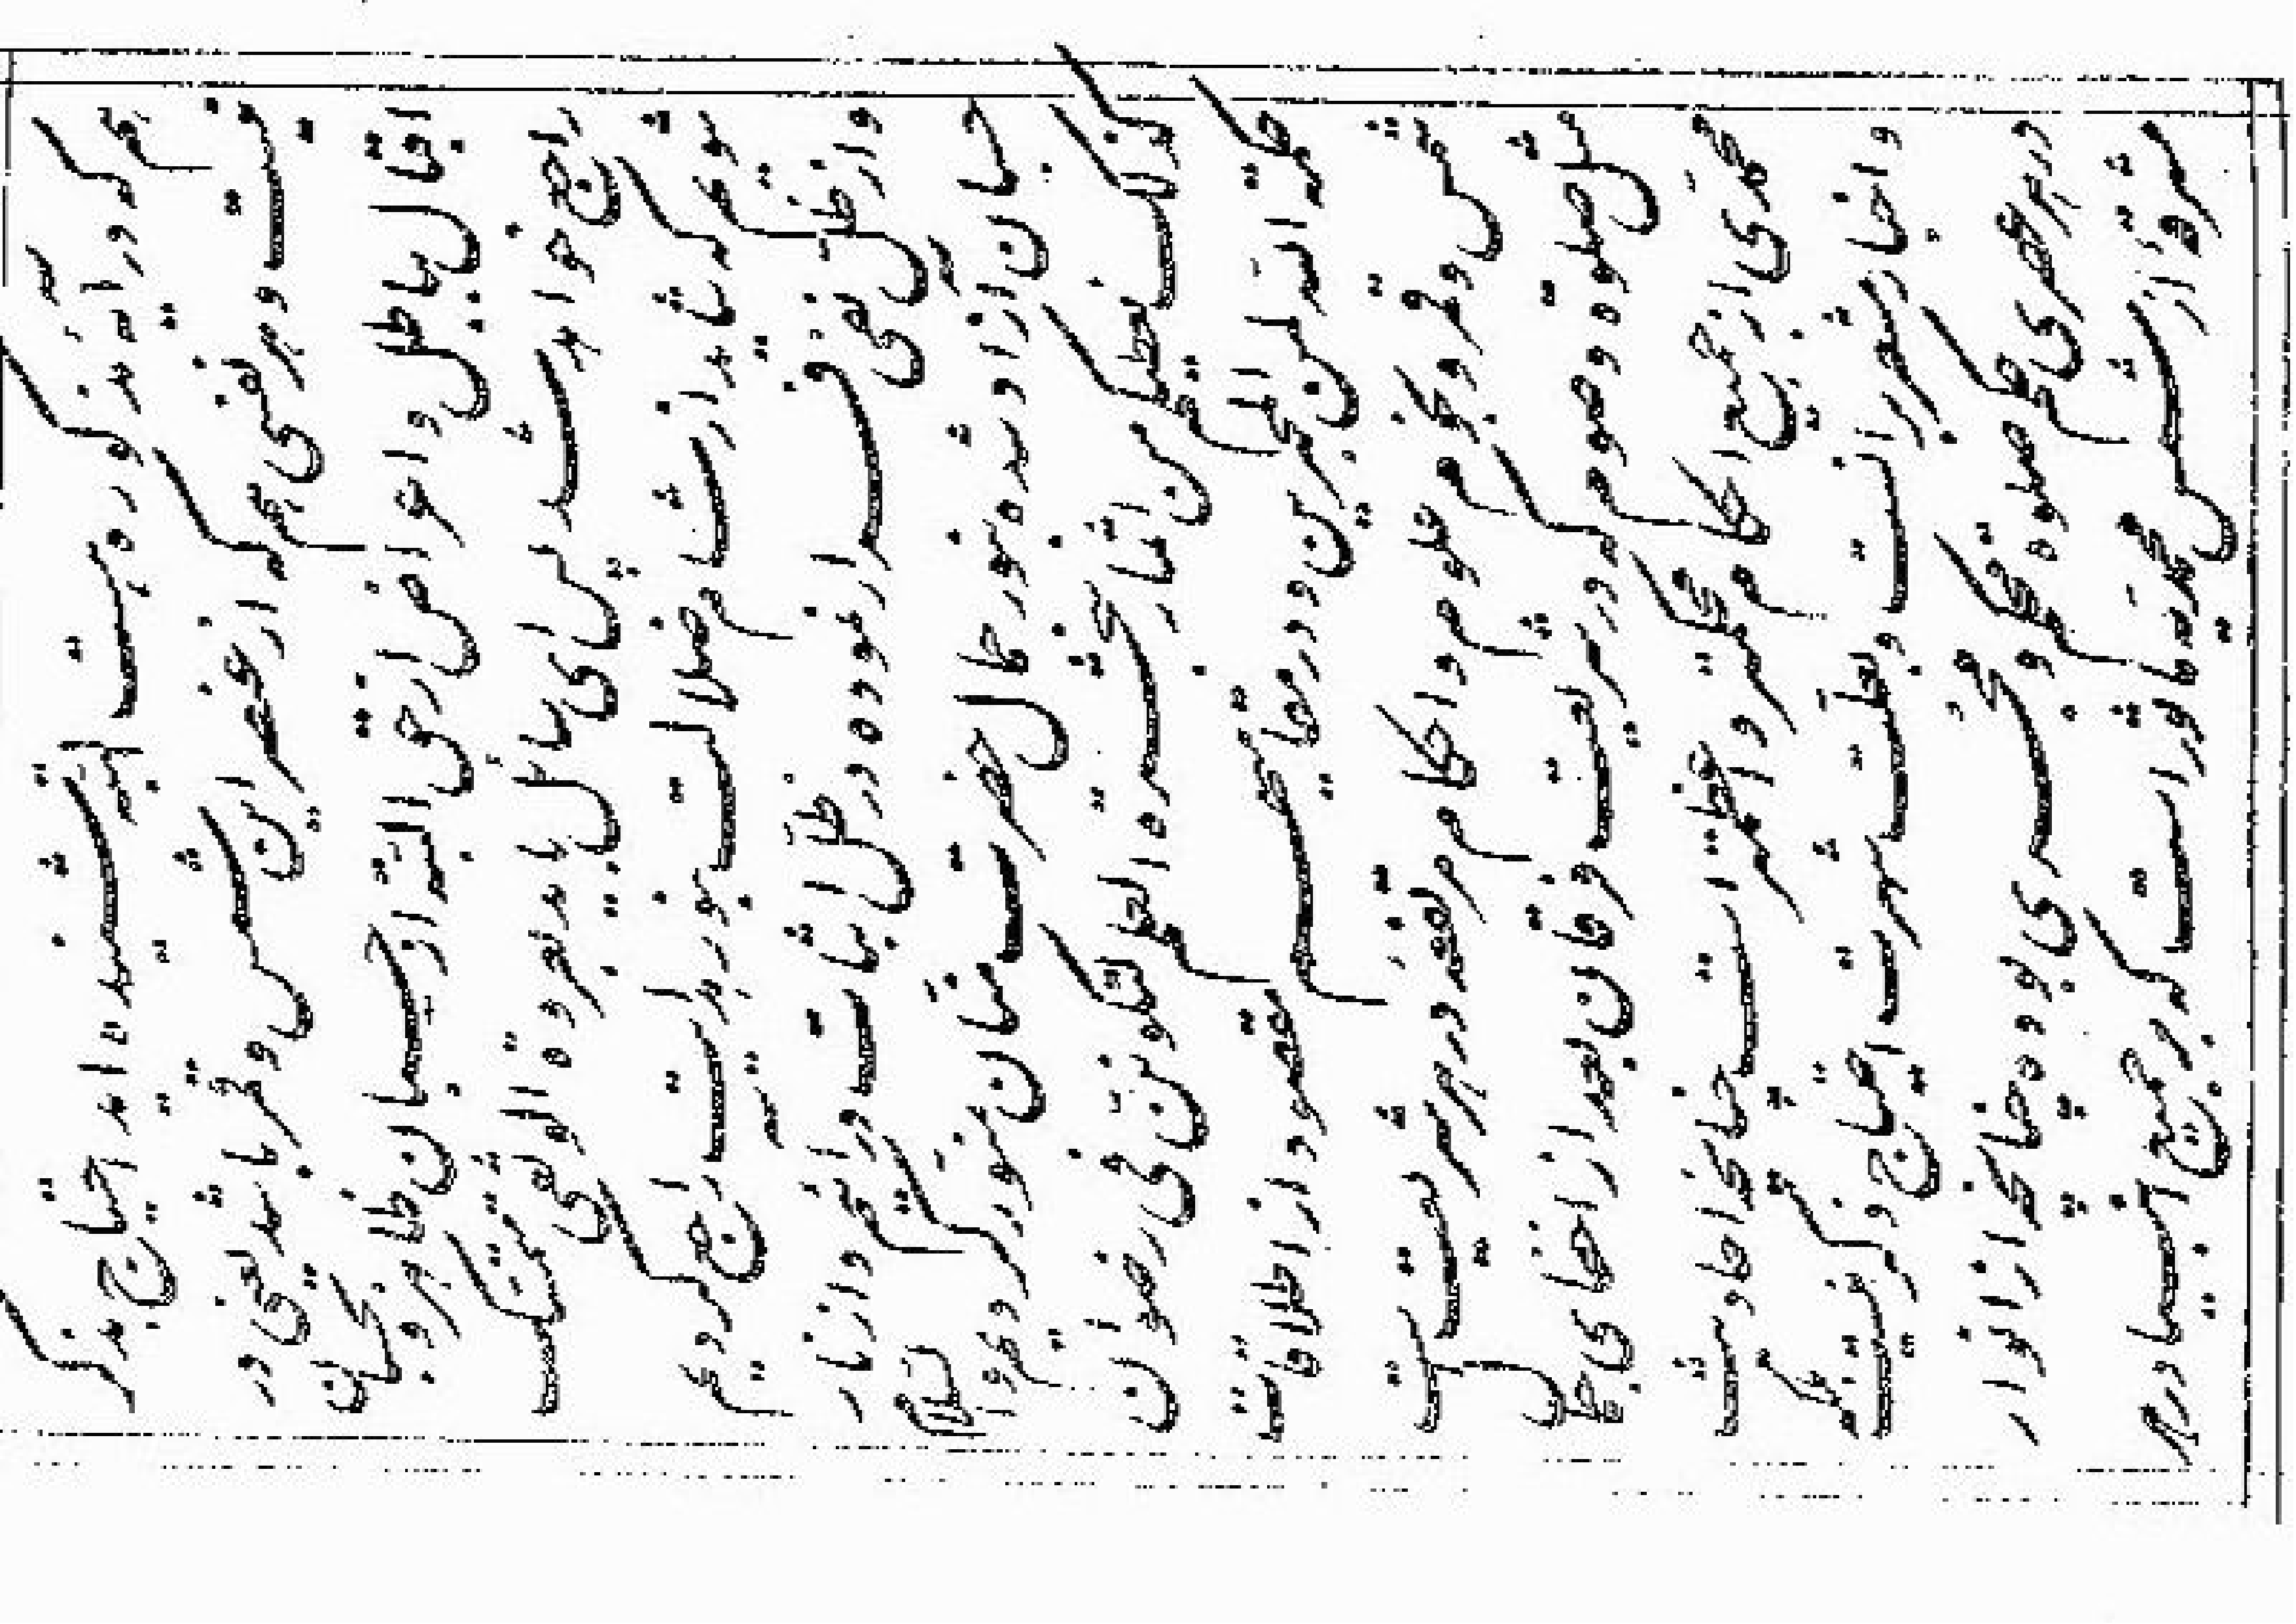 که در آیه مذکور و مرقوم است البته شنیده اند احتیاج بذکر
نیست و هر نفسی هم که از عنصر این شمس و قمر باشد یعنی در
اقبال بباطل و اعراض از حق البته از حسبان ظاهر و بحسبان
راجع خواهد شد پس ای سائل باید بعروة الوثقی متمسک
شویم که شاید از شام ضلالت بنور هدایت راجع گردیم
و از ظل نفی فرار نموده در ظل اثبات درآئیم و از نار
حسبان آزاد شده بنور جمال حضرت منان منور گردیم والسلام
کذلک نعطیکم من اثمار شجرة العلم لتکونن فی رضوان
حکمة الله لمن المحبرین و در مقامی هم مقصود از اطلاقات
شمس و قمر و نجوم علوم و احکام مرتفعه در هر شریعت است
مثل صلوة و صوم که در شریعت فرقان بعد از اخفای جمال
محمدی از جمیع احکام محکمتر و اعظمتر است چنانچه احادیث
و اخبار مشعر بر آنست و بعلت شهرت احتیاج ذکر نیست بلکه
در هر عصری حکم صلوة محکم و مجری بوده چنانچه از انوار
مشرقه از شمس محمدیه مأثور است که بر جمیع انبیا در هر